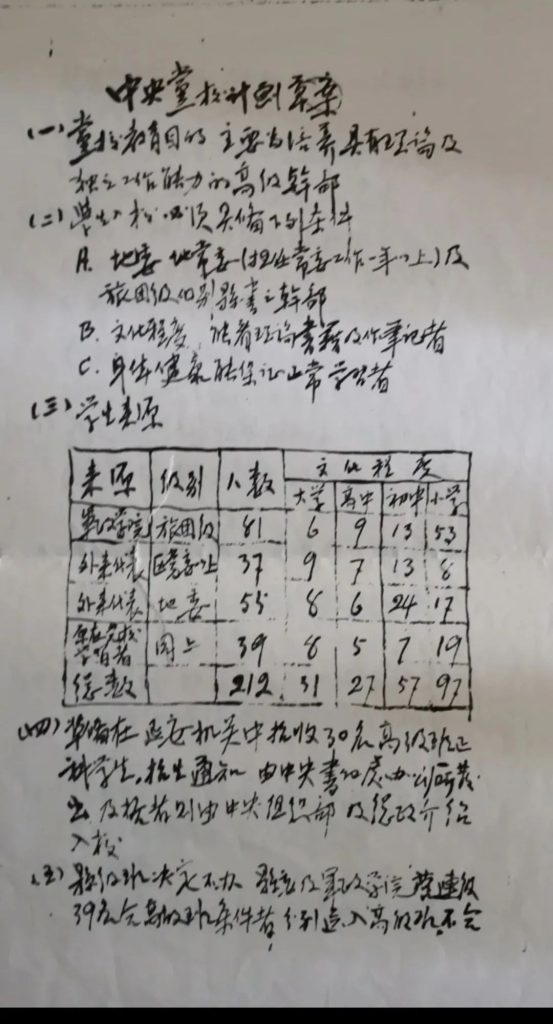 中央党校计划草案
(一)党校教育目的 主要为培养具有理论及
独立工作能力的高级幹部
(二)学生入校必须具备下列条件
A. 地委 地常委(担任常委工作一年以上)及
旅团级 个别县书之幹部
B. 文化程度,能看理论書籍及作筆记者
C. 身体健康能保证正常学习者
(三)学生来源
文化程度
来原 级别 人数 大学 高中 初中 小学
軍政学院 旅团级 81 6 9 13 53
外来代表 区党委以上 37 9 7 13 8
外来代表 地委 55 8 6 24 17
学习者 同上 39 8 5 7 19
总数 212 31 27 57 97
(四)準备在延安机关中招收30名高级班正
科学生,招生通知 由中央書记处办公所发
出 及格者则由中央组织部及总政介绍
入校
(五)县级班决定不办 县委及軍政学院营连级
39名合县级班条件者,分别送入高级班,不合